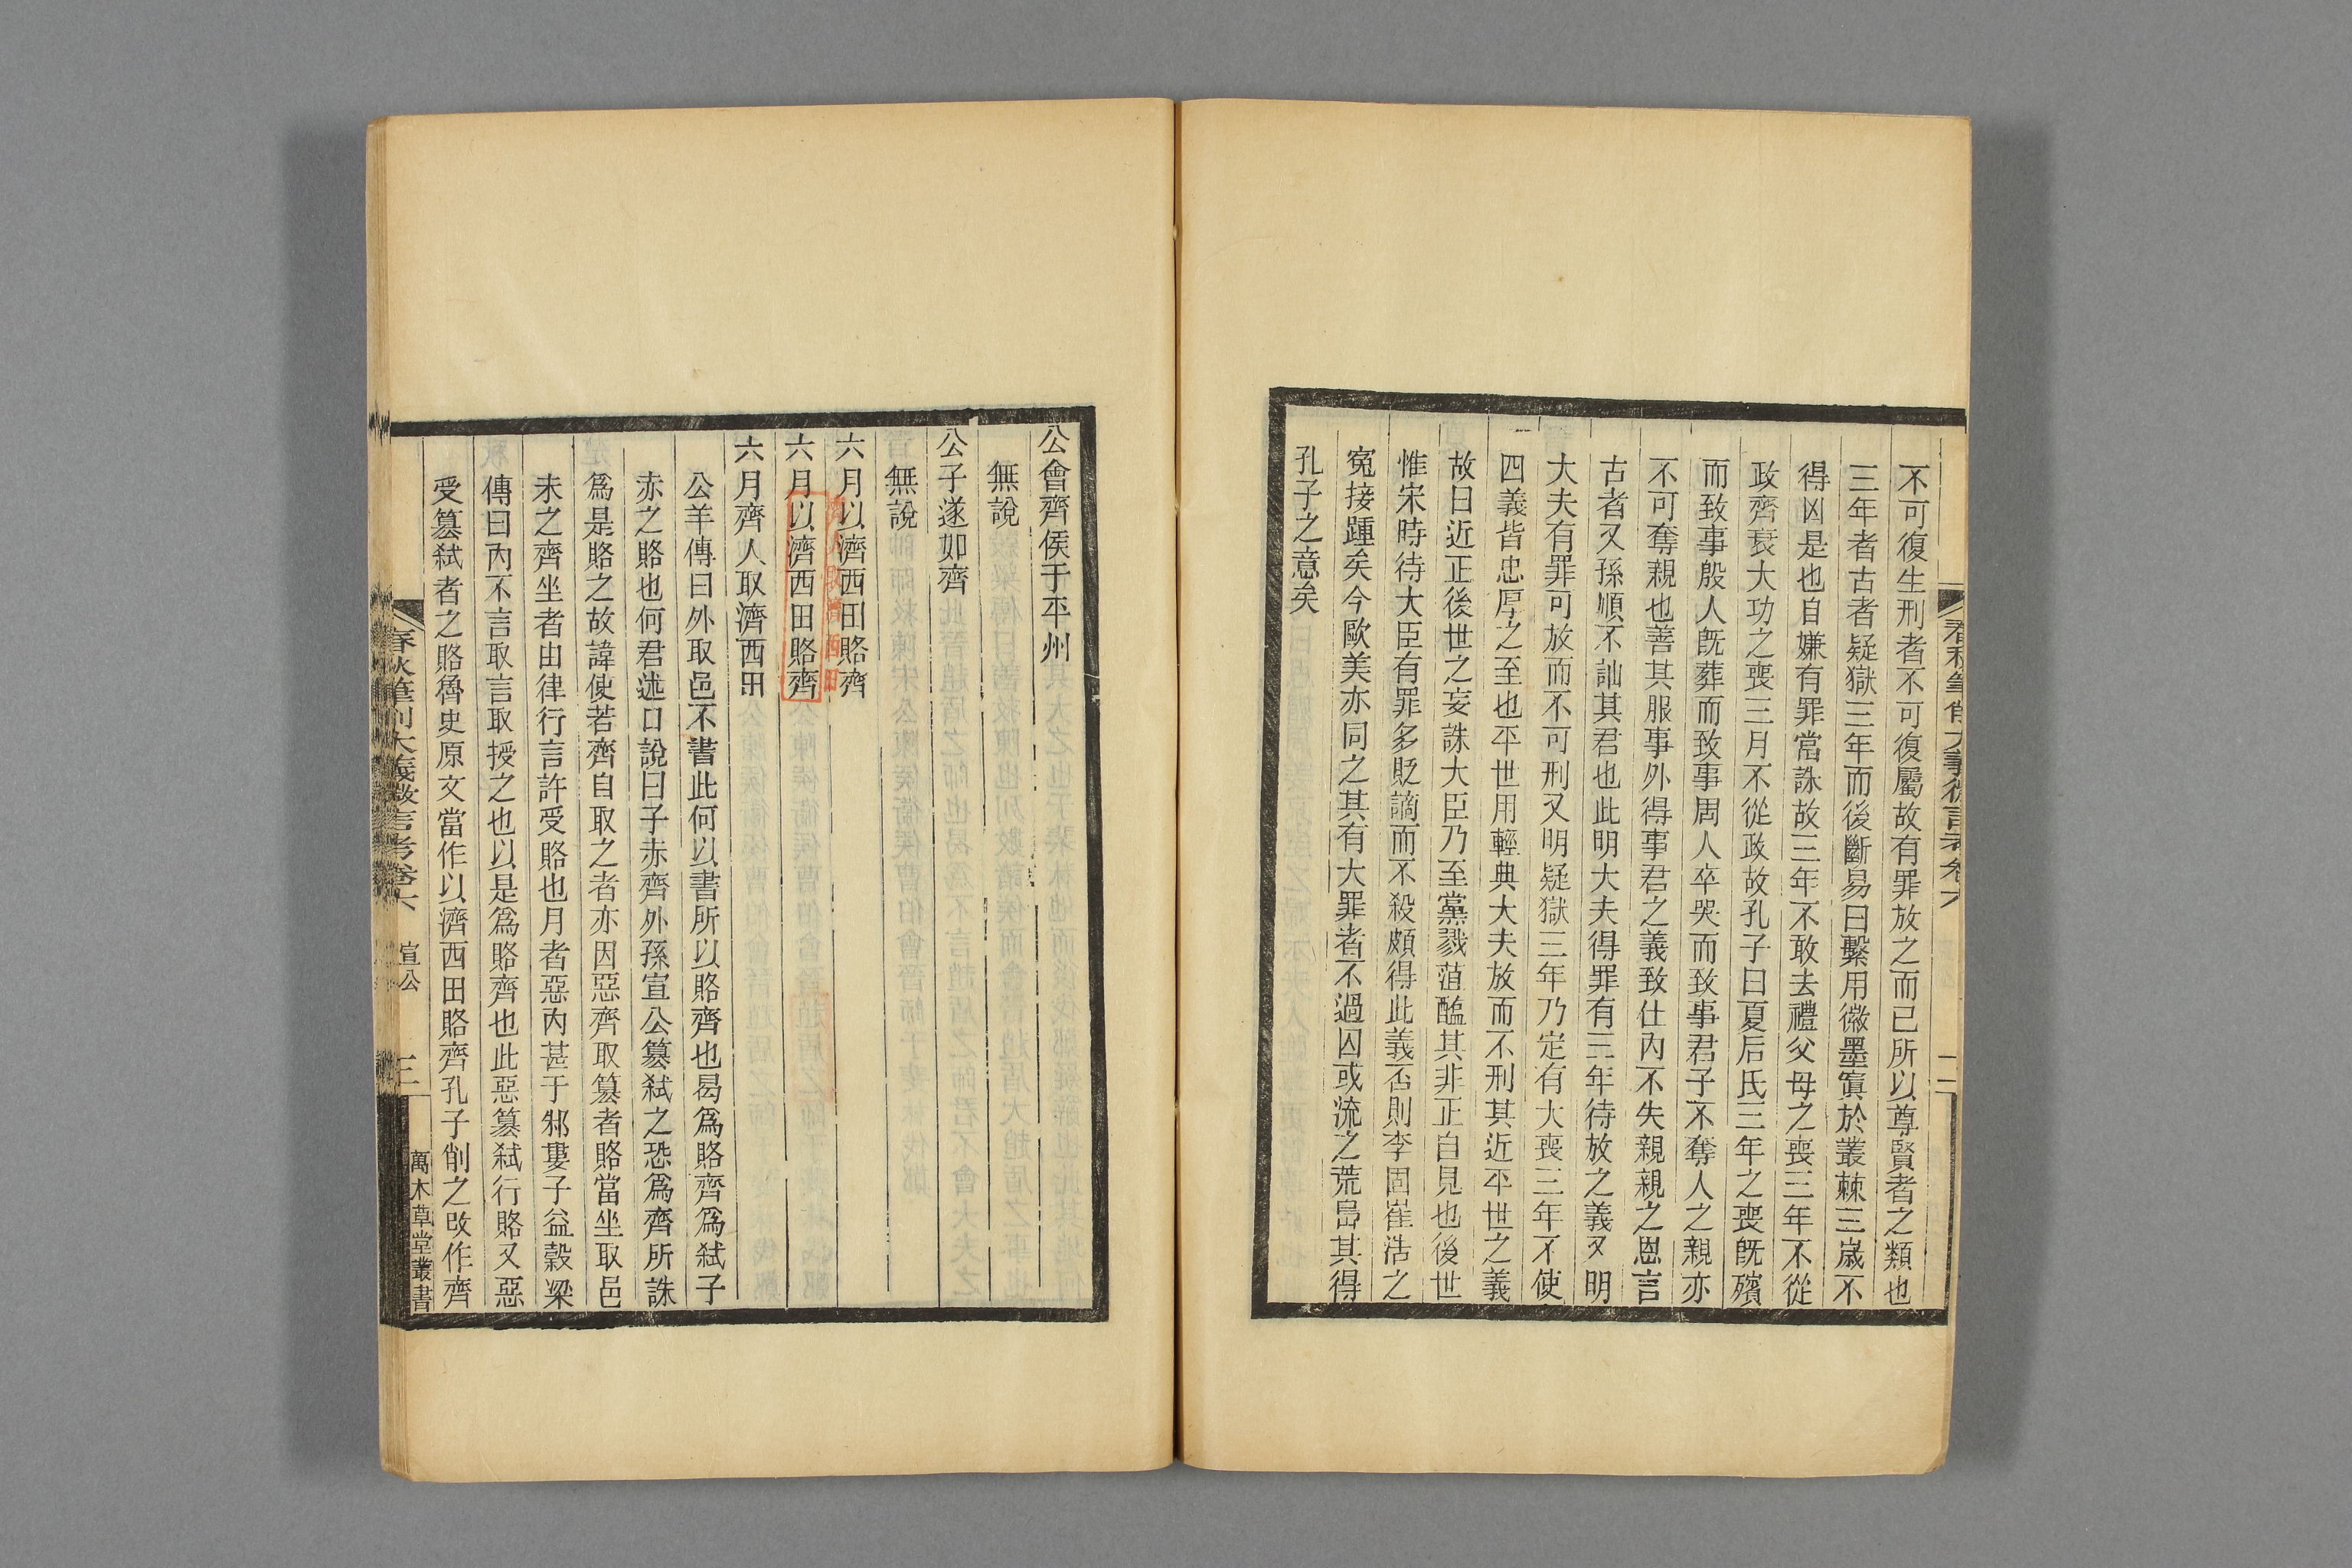 不可復生刑者不可復屬故有罪放之而已所以尊賢者之類也
三年者古者疑獄三年而後斷易曰繫用徽墨寘於叢棘三歲不
得凶是也自嫌有罪當誅故三年不敢去禮父母之喪三年不從
政齊衰大功之喪三月不從政故孔子曰夏后氏三年之喪旣殯
而致事殷人旣葬而致事周人卒哭而致事君子不奪人之親亦
不可奪親也善其服事外得事君之義致仕內不失親親之恩言
古者又孫順不訕其君也此明大夫得罪有三年待放之義又明
大夫有罪可放而不可刑又明疑獄三年乃定有大喪三年不使
四義皆忠厚之至也平世用輕典大夫放而不刑其近平世之義
故曰近正後世之妄誅大臣乃至黨戮葅醢其非正自見也後世
惟宋時待大臣有罪多貶謫而不殺頗得此義否則李固崔浩之
寃接踵矣今歐美亦同之其有大罪者不過囚或流之荒島其得
孔子之意矣
二
公會齊侯于平州
無說
公子遂如齊
無說
六月以濟西田賂齊
齊人取濟西田
六月以濟西田賂齊
六月齊人取濟西田
公羊傳曰外取邑不書此何以書所以賂齊也曷爲賂齊爲弑子
赤之賂也何君述口說曰子赤齊外孫宣公簒弑之恐爲齊所誅
爲是賂之故諱使若齊自取之者亦因惡齊取簒者賂當坐取邑
未之齊坐者由律行言許受賂也月者惡內甚于邾婁子益穀梁
傳曰內不言取言取授之也以是爲賂齊也此惡簒弑行賂又惡
受簒弑者之賂魯史原文當作以濟西田賂齊孔子削之改作齊
春秋筆削大義微言考卷六 宣公 三 萬木草堂叢書